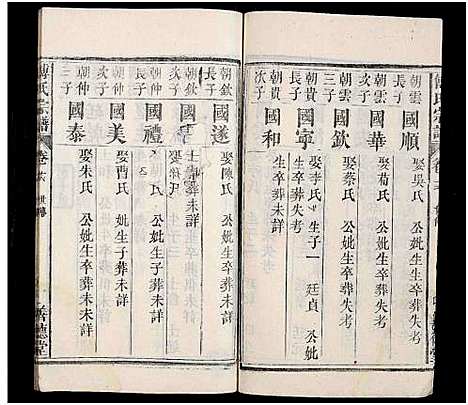 傅氏宗譜
朝雲長子
國順
娶吳氏 公妣生卒葬失考
朝雲次子
國華
娶荀氏 公妣生卒葬失考
朝雲三子
國欽
娶蔡氏 公妣生卒葬失考
朝貴長子
國寧
娶李氏 生子一 廷貞 公妣生卒葬失考
朝貴次子
國和
生卒葬未詳
朝欽長子
國遂
娶陳氏 公妣生卒葬未詳
朝欽次子
國
生卒葬未詳
朝仲長子
國禮
公妣生子葬未未詳
朝仲次子
國美
娶曹氏 公妣生子葬未未詳
朝仲三子
國泰
娶朱氏 公妣生卒葬未未詳
傅氏宗譜
卷六 世傳
善德堂